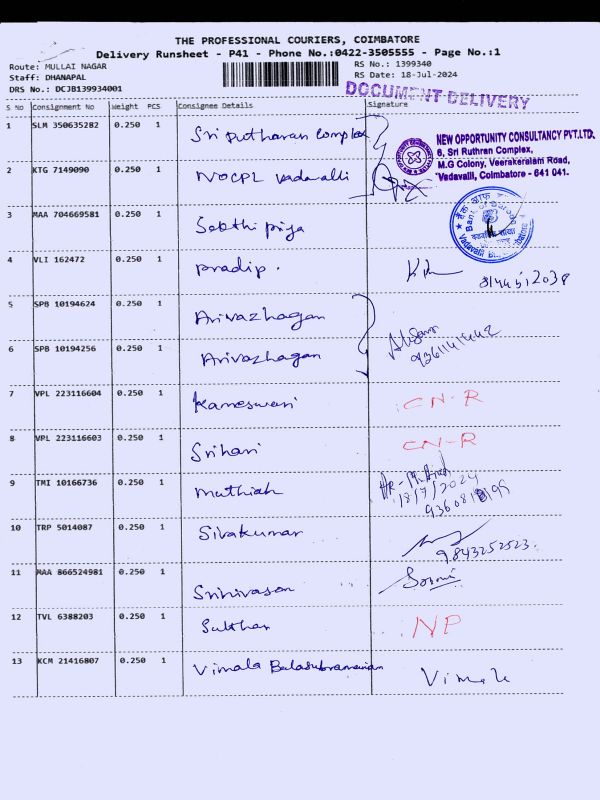 THE PROFESSIONAL COURIERS, COIMBATORE
Delivery Runsheet - P41 - Phone No.:0422-3505555 - Page No.:1
Route: MULLAI NAGAR
Staff: DHANAPAL
DRS No.: DCJB139934001
RS No.: 1399340
RS Date: 18-Jul-2024
DOCUMENT DELIVERY
S No Consignment No Weight PCS Consignee Details Signature
1 SLM 350635282 0.250 1 Sri Rutharan Complex
NEW OPPORTUNITY CONSULTANCY PVT.LTD.
6, Sri Ruthran Complex,
M.G Colony, Veerakeralam Road,
Vadavalli, Coimbatore - 641 041.
2 KTG 7149090 0.250 1 NOCPL Vadavalli
3 MAA 704669581 0.250 1 Sakthi priya
Bank of Baroda
4 VLI 162472 0.250 1 Pradip.
5 SPB 10194624 0.250 1 Arivazhagan
6 SPB 10194256 0.250 1 Arivazhagan
9361141442
7 VPL 223116604 0.250 1 Kameswari CN-R
8 VPL 223116603 0.250 1 Srihari CN-R
9 TMI 10166736 0.250 1 Muthiah
18/7/2024
10 TRP 5014087 0.250 1 Sivakumar
9843252523
11 MAA 866524981 0.250 1 Srinivasan
12 TVL 6388203 0.250 1 Sulthan NP
13 KCM 21416807 0.250 1 Vimala Balasubramanian